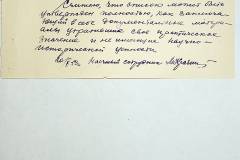 Считаю, что список может быть
утвержден полностью, как
в себе документальные матери-
алы утратившие свое практическое
значение и не имеющие научно-
исторической ценности
Научный сотрудник